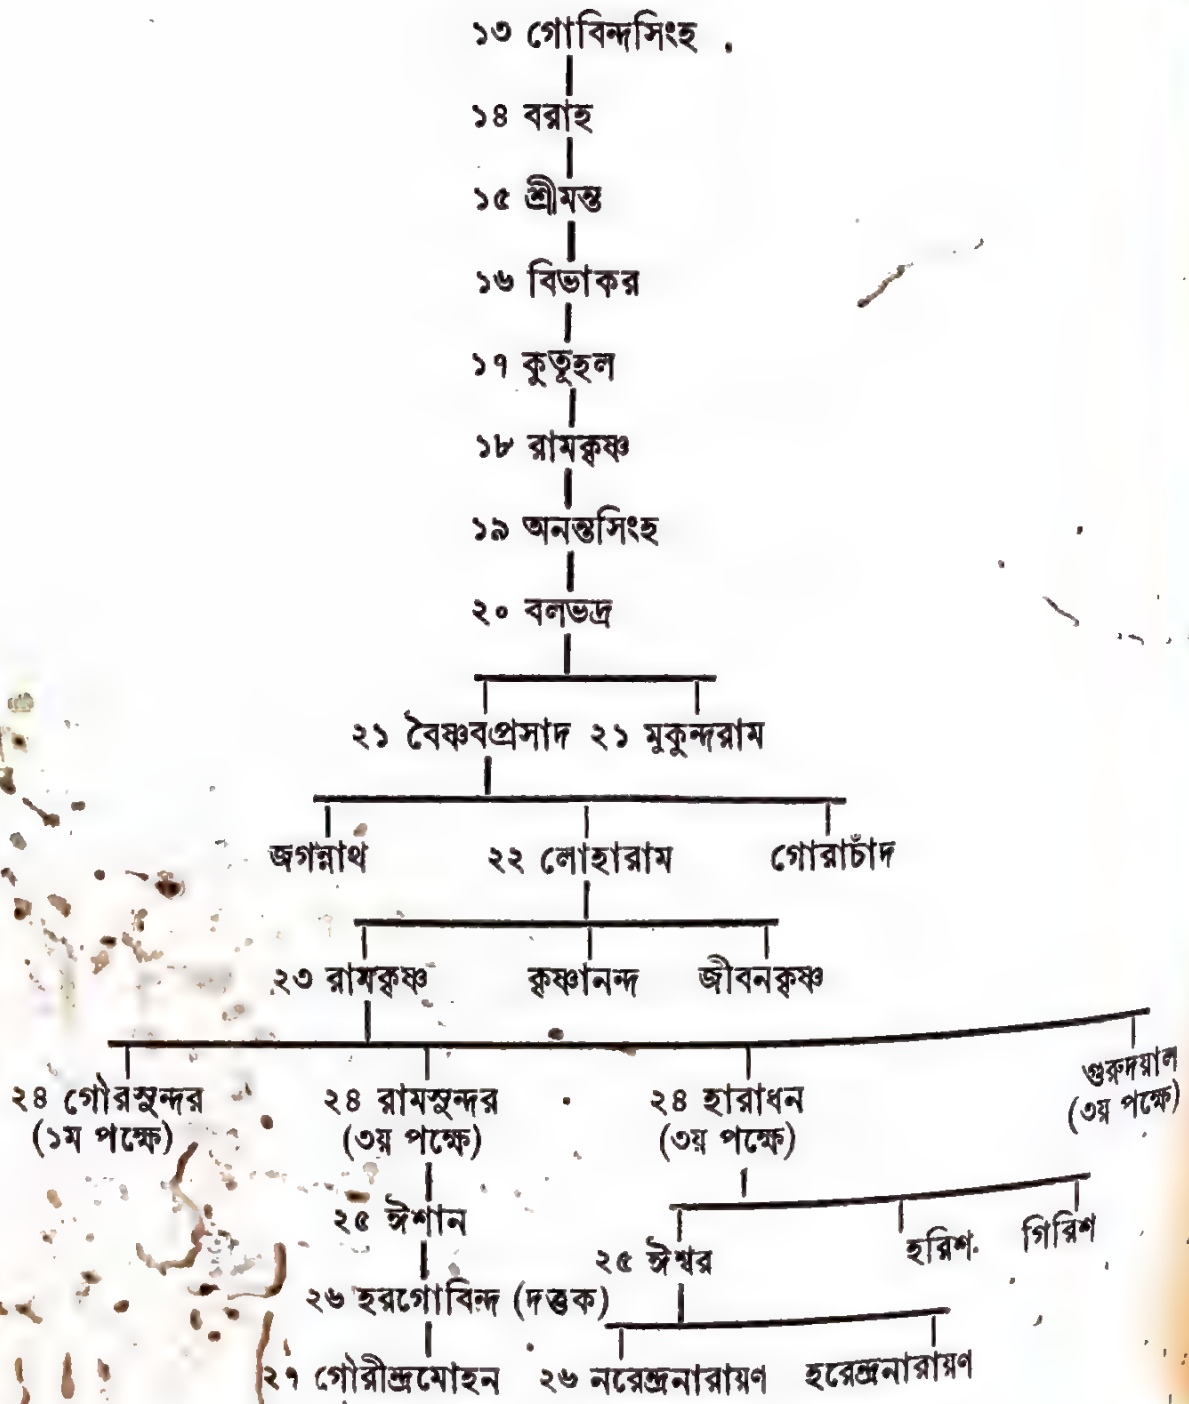 ১৩ গোবিন্দসিংহ
১৪ বরাহ
১৫ শ্রীমন্ত
১৬ বিভাকর
১৭ কুতূহল
১৮ রামকৃষ্ণ
১৯ অনন্তসিংহ
২০ বলভদ্র
২১ বৈষ্ণবপ্রসাদ ২১ মুকুন্দরাম
জগন্নাথ ২২ লোহারাম গোরাচাঁদ
২৩ রামকৃষ্ণ কৃষ্ণানন্দ জীবনকৃষ্ণ
২৪ গৌরসুন্দর ২৪ রামসুন্দর ২৪ হারাধন গুরুদয়াল
(১ম পক্ষে) (৩য় পক্ষে) (৩য় পক্ষে) (৩য় পক্ষে)
২৫ ঈশান ২৫ ঈশ্বর হরিশ গিরিশ
২৬ হরগোবিন্দ (দত্তক)
২৭ গৌরীন্দ্রমোহন ২৬ নরেন্দ্রনারায়ণ হরেন্দ্রনারায়ণ